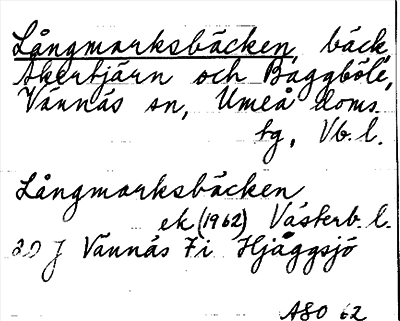 Långmarksbäcken, bäck
Åkertjärn och Baggböle,
Vännäs sn, Umeå doms.
tg, Vb. l.
Långmarksbäcken
ek (1962) Västerb. l.
20 J Vännäs 7i Hjäggsjö
ASO 62